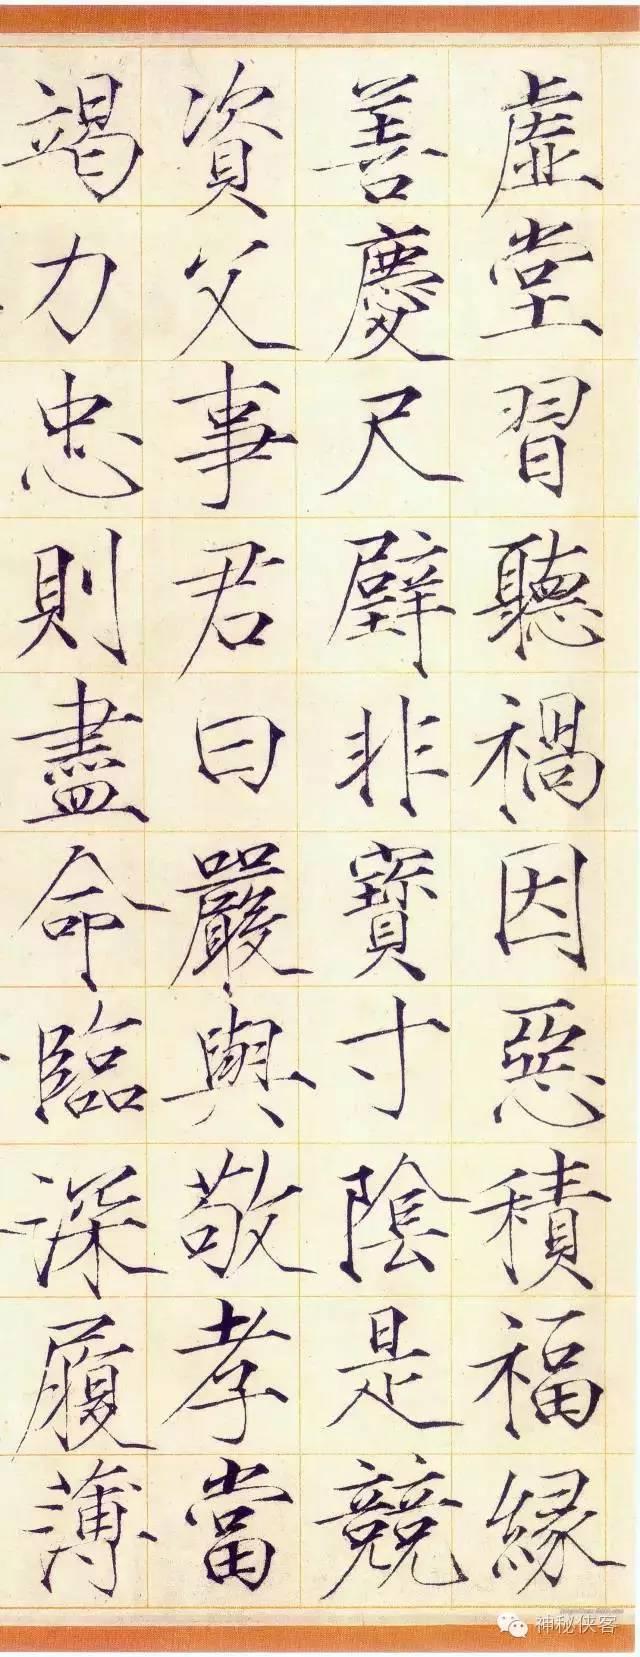 虛堂習聽禍因惡積福緣
善慶尺璧非寶寸陰是競
資父事君曰嚴與敬孝當
竭力忠則盡命臨深履薄
神秘侠客